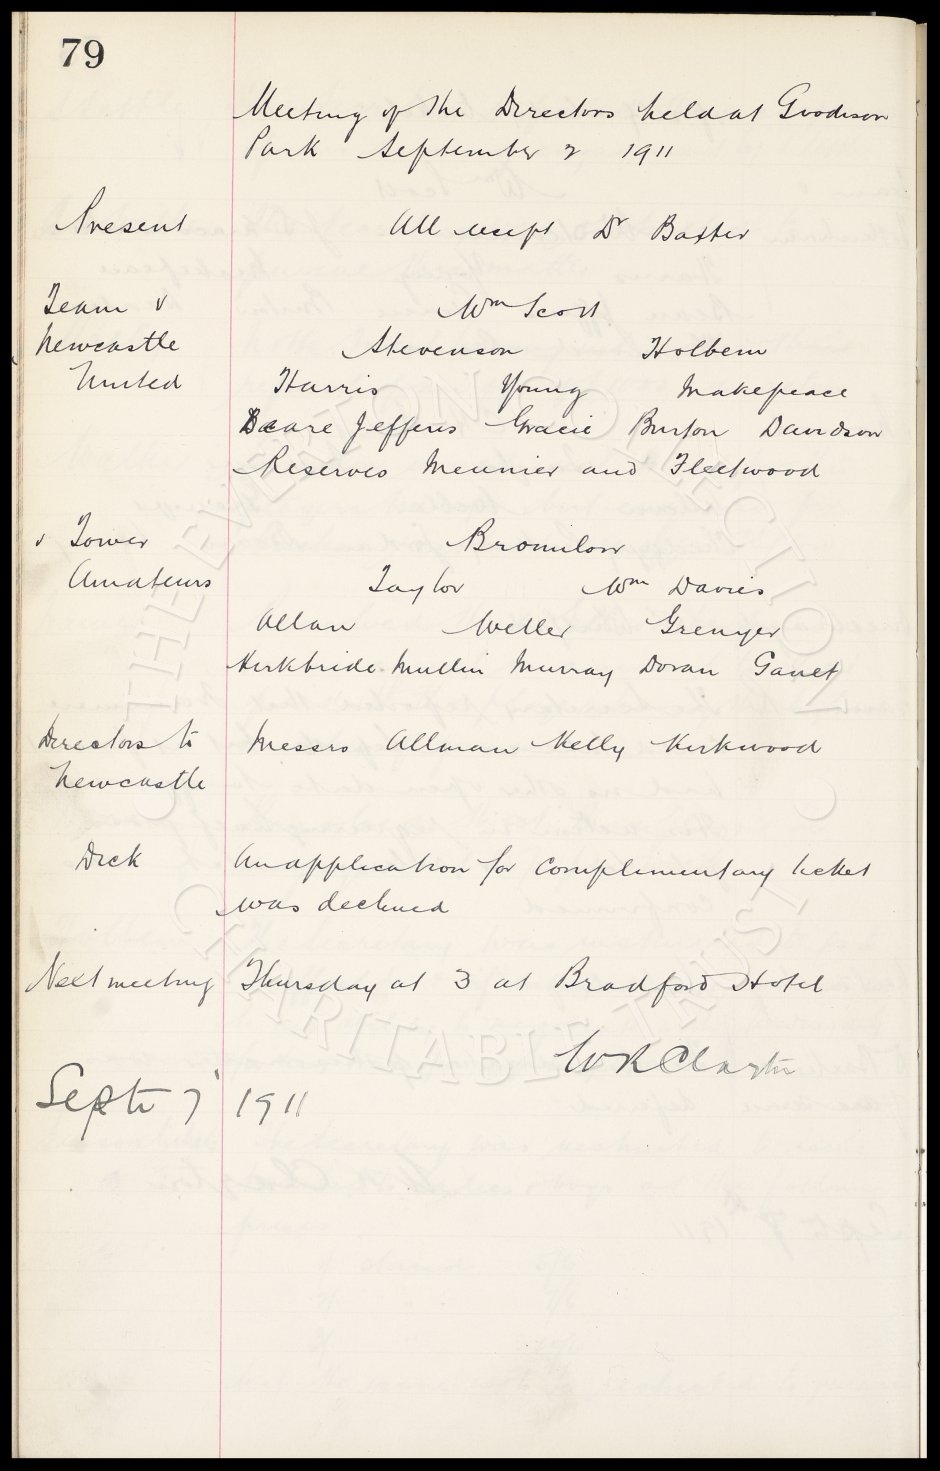 79
Meeting of the Directors held at Goodison
Park September 2 1911
Present All except Dr Baxter
Team v Wm Scott
Newcastle Stevenson Holbem
United Harris Young Makepeace
Beare Jefferis Gracie Burton Davidson
Reserves Meunier and Fleetwood
v Tower Bromilow
Amateurs Taylor Wm Davies
Allan Weller Grenyer
Kirkbride Mullin Murray Doran Gault
Directors to Messrs Allman Kelly Kirkwood
Newcastle
Dick An application for complimentary ticket
was declined
Next meeting Thursday at 3 at Bradford Hotel
W R Clayton
Septr 7 1911
THE EVERTON COLLECTION
CHARITABLE TRUST